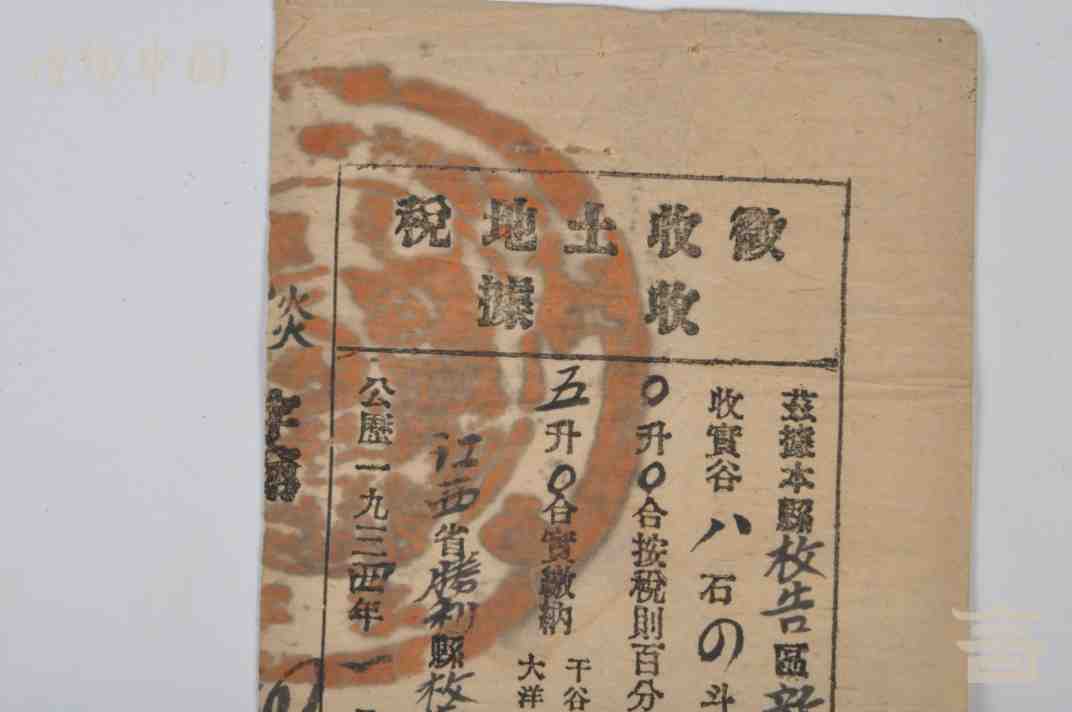 徵收土地税
收據
茲據本縣枚告區新
收實谷八石の斗
〇升〇合按税則百分
五升〇合實繳納
干谷
大洋
江西省勝利縣枚
公歷一九三四年一